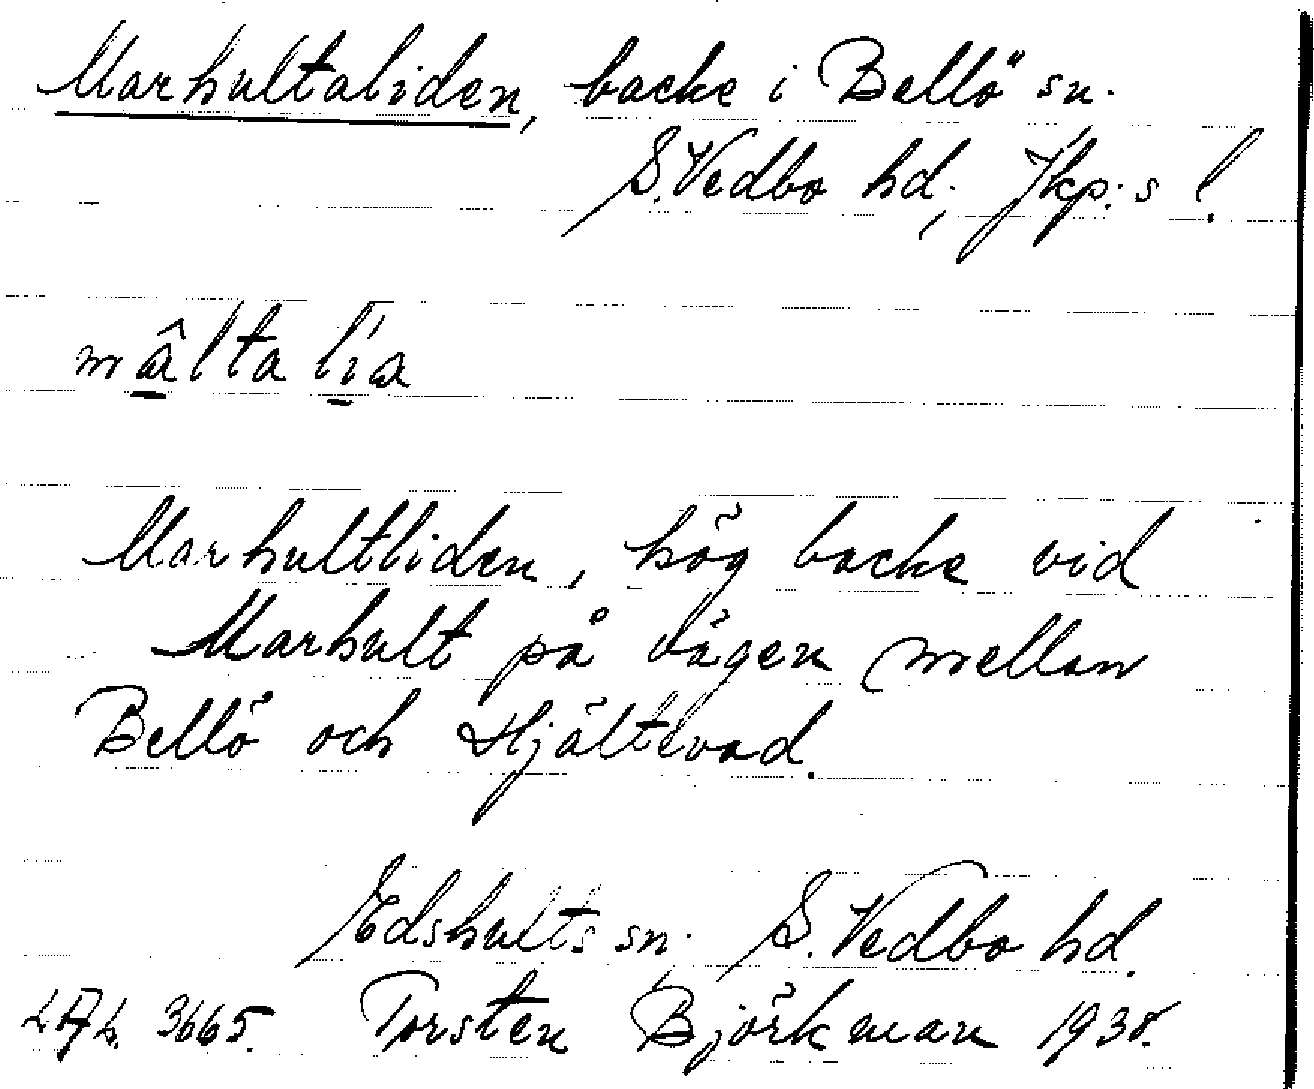 Marhultaliden, backe i Bellö sn.
S. Vedbo hd, Jkp:s l.
mâlta lía
Marhultliden, hög backe vid
Marhult på vägen mellan
Bellö och Hjältevad.
Edshults sn. S. Vedbo hd.
3665. Torsten Björkman 1938.